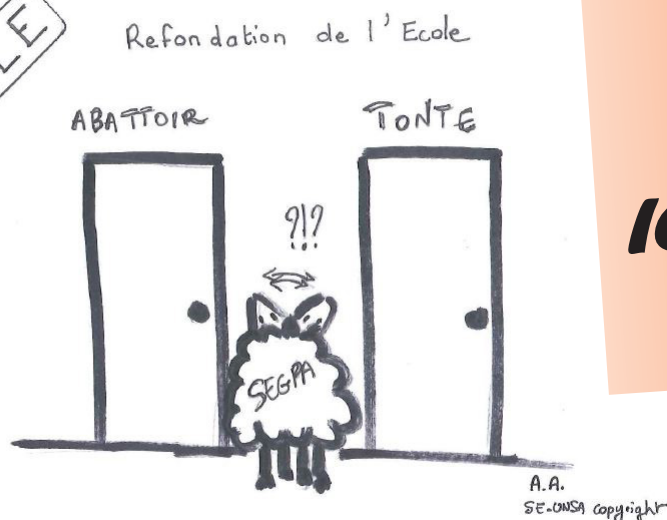 Refondation de l'Ecole
ABATTOIR
TONTE
?!?
SEGPA
A.A.
SE-UNSA copyright